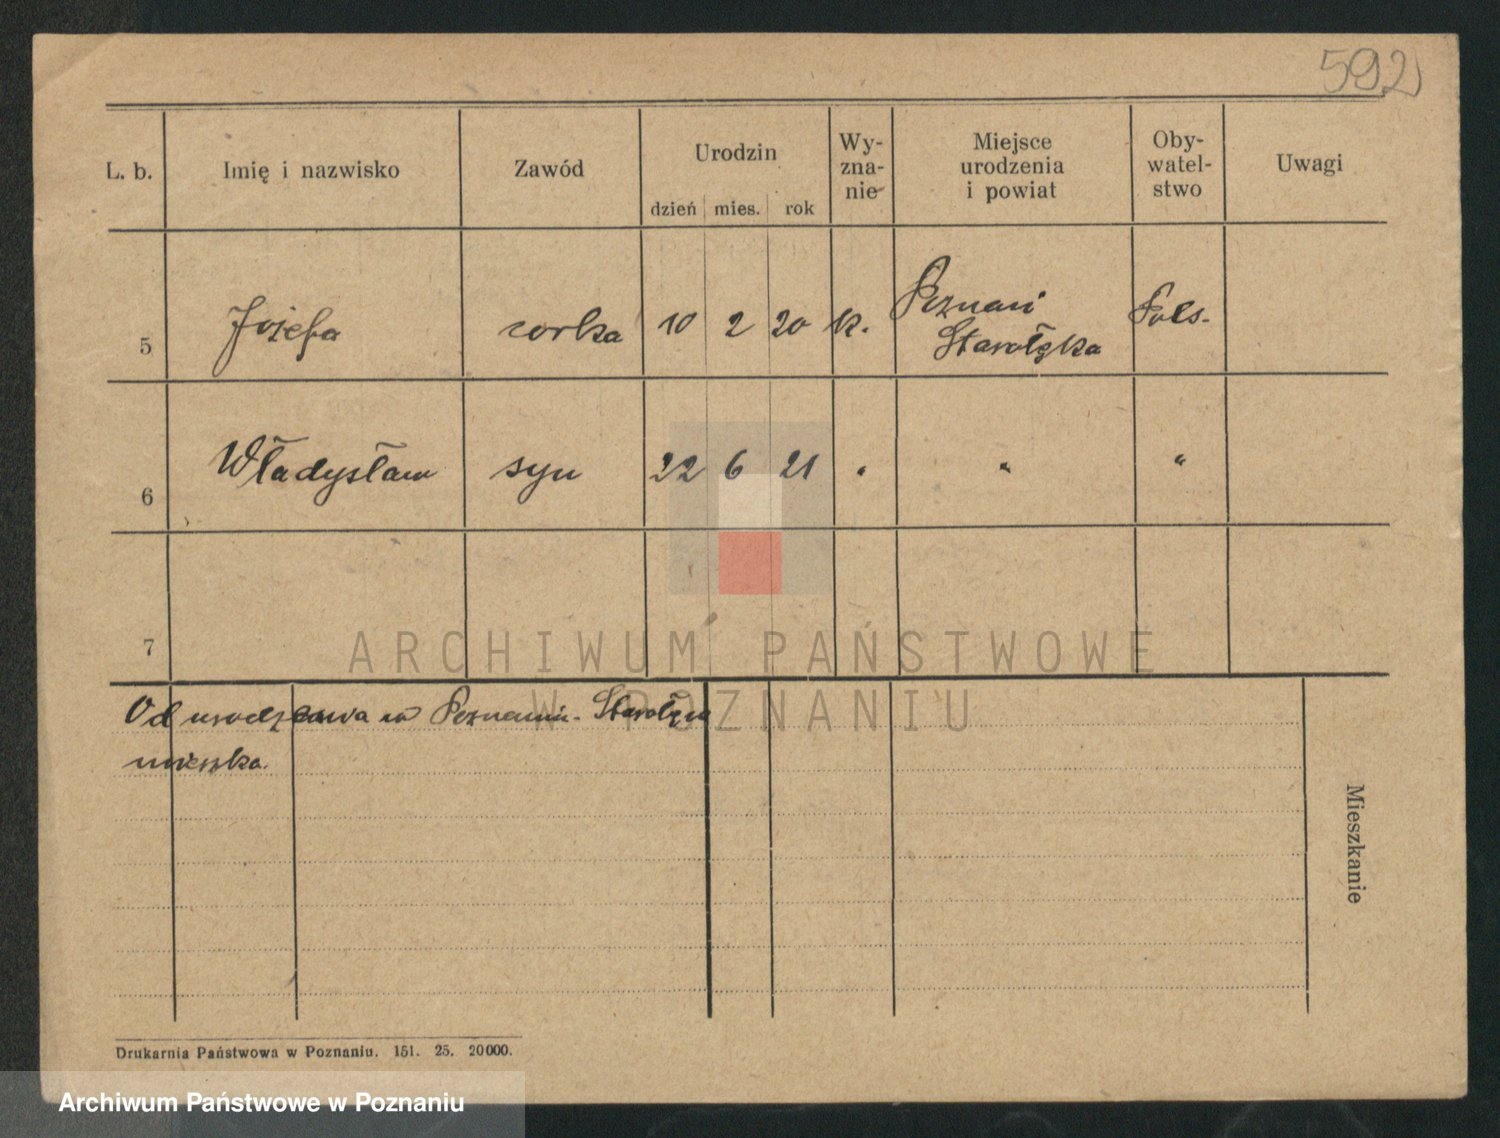 592
L. b.
Imię i nazwisko
Zawód
Urodzin
dzień mies. rok
Wy-
zna-
nie
Miejsce
urodzenia
i powiat
Oby-
watel-
stwo
Uwagi
5 Józefa corka 10 2 20 k. Poznań Pols.
Starołęka
6 Władysław syn 22 6 21 " " "
7
ARCHIWUM PAŃSTWOWE
W POZNANIU
Od urodzenia w Poznaniu-Starołęce
mieszka.
Mieszkanie
Drukarnia Państwowa w Poznaniu. 151. 25. 20000.
Archiwum Państwowe w Poznaniu